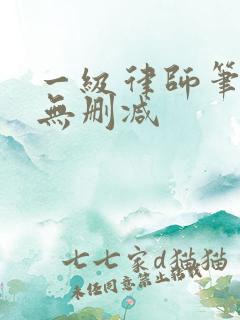 一級律師筆
無刪減
七七家d貓貓
未任同意禁止轉載